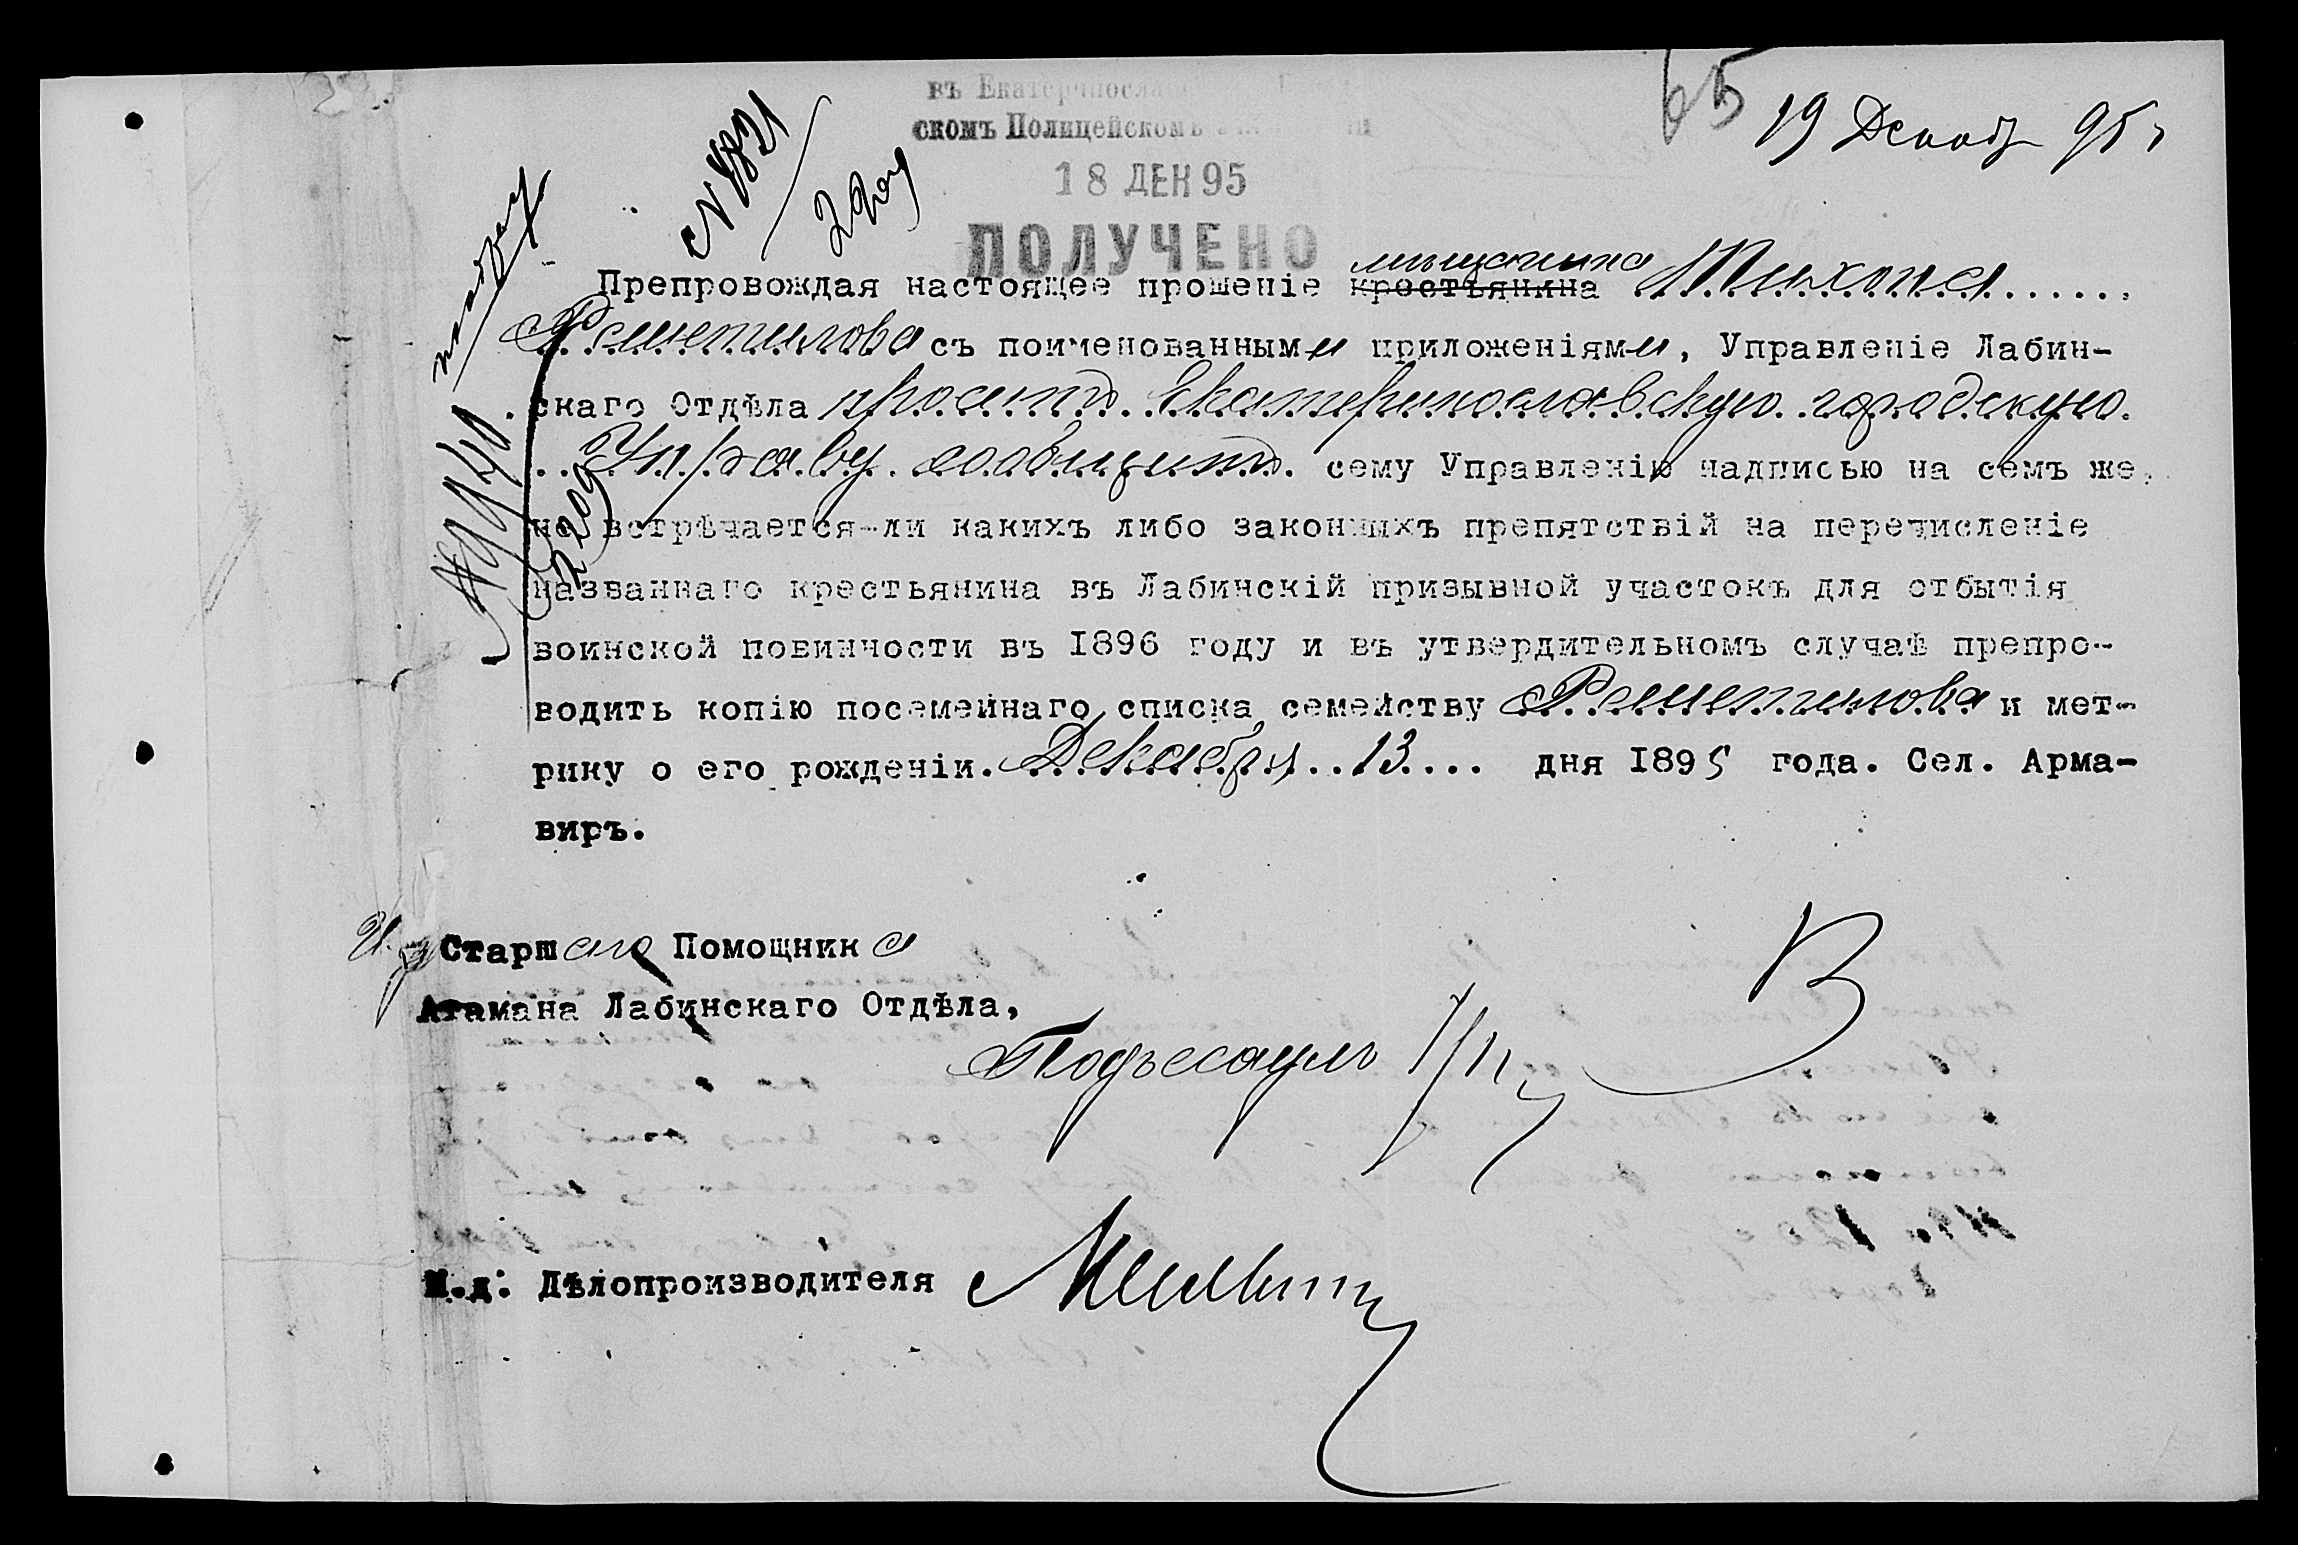 65
19 Декаб 95 г
въ Екатериносла
скомъ Полицейскомъ
18 ДЕК 95
ПОЛУЧЕНО
мѣщанина
Препровождая настоящее прошеніе крестьянина Тихона
Решетилова съ поименованными приложеніями, Управленіе Лабин-
скаго Отдѣла проситъ Екатеринославскую городскую
Управу сообщить сему Управленію надписью на семъ же,
не встрѣчается-ли какихъ либо законныхъ препятствій на перечисленіе
названнаго крестьянина въ Лабинскій призывной участокъ для отбытія
воинской повинности въ 1896 году и въ утвердительномъ случаѣ препро-
водить копію посемейнаго списка семейству Решетилова и мет-
рику о его рожденіи. Декабря 13 дня 1895 года. Сел. Арма-
виръ.
И. д. Старшаго Помощника
Атамана Лабинскаго Отдѣла,
Подъесаулъ
И.д. Дѣлопроизводителя